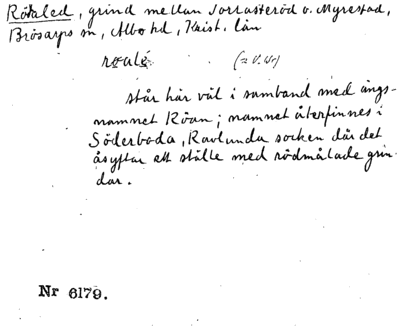 Röaled, grind mellan Torrasteröd o. Myrestad,
Brösarps sn, Albo hd, Krist. län
roale (= v. ur)
står här väl i samband med ängs-
namnet Röan; namnet återfinnes i
Söderboda, Ravlunda socken där det
åsyftar ett ställe med rödmålade grin-
dar.
Nr 6179.